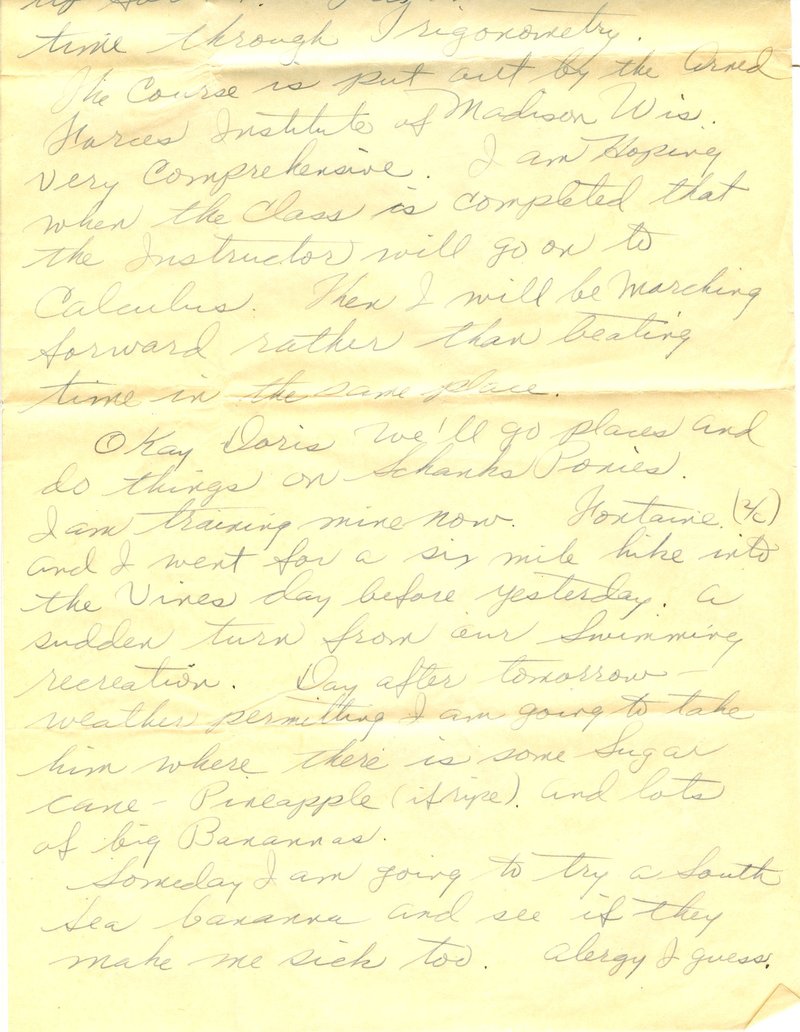 time through Trigonometry.
The Course is put out by the Armed
Forces Institute of Madison Wis.
Very Comprehensive. I am Hoping
when the Class is completed that
the Instructor will go on to
Calculus. Then I will be Marching
forward rather than beating
time in the same place.
OKay Doris we'll go places and
do things on Schanks Ponies.
I am training mine now. Fontaine (2/c)
and I went for a six mile hike into
the Vines day before yesterday. a
sudden turn from our Swimming
recreation. Day after tomorrow -
weather permitting I am going to take
him where there is some Sugar
cane - Pineapple (if ripe) and lots
of big Banannas.
Someday I am going to try a South
Sea bananna and see if they
make me sick too. Alergy I guess.